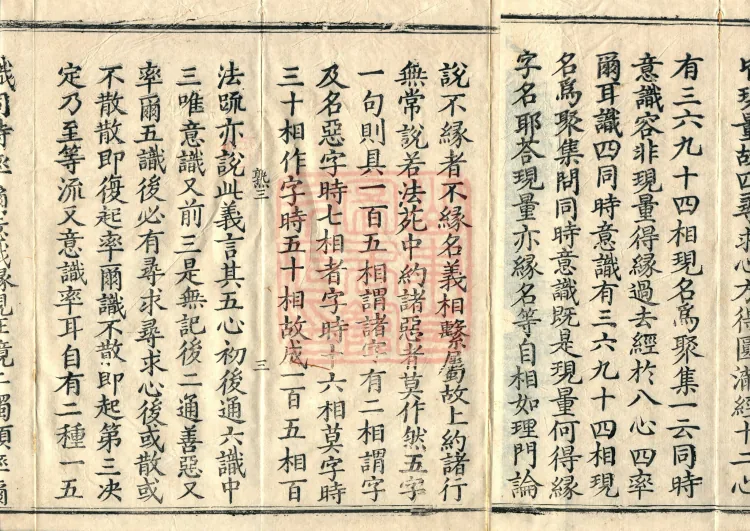 有三六九十四相現名爲聚集一云同時
意識容非現量得緣過去經於八心四率
爾耳識四同時意識有三六九十四相現
名爲聚集問同時意識既是現量何得緣
字名耶荅現量亦緣名等自相如理門論
說不緣者不緣名義相繫屬故上約諸行
無常說若法苑中約諸惡者莫作然五字
一句則具一百五相謂諸字有二相謂字
及名惡字時七相者字時十六相莫字時
三十相作字時五十相故成二百五相百
熟三
三
法䟽亦說此義言其五心初後通六識中
三唯意識又前三是無記後二通善惡又
率爾五識後必有尋求尋求心後或散或
不散散即復起率爾識不散即起第三决
定乃至等流又意識率耳自有二種一五